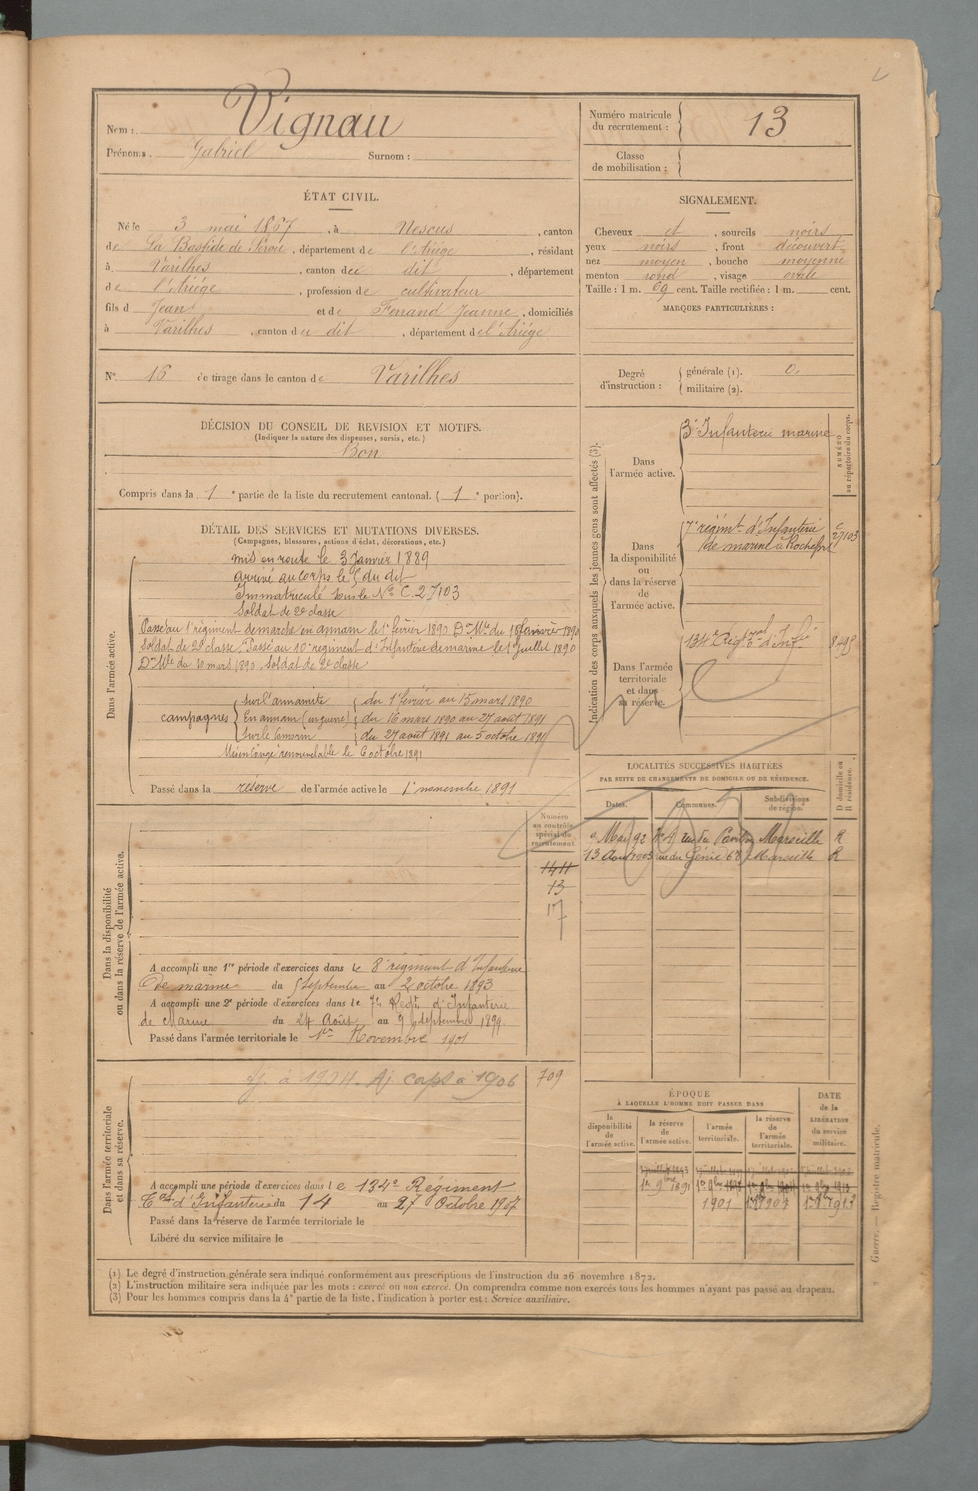 Nom : Vignau
Prénoms : Gabriel Surnom :
Numéro matricule du recrutement : 13
Classe de mobilisation :
ÉTAT CIVIL.
Né le 3 mai 1867, à Nescus, canton
de La Bastide de Sérou, département de l'Ariége, résidant
à Varilhes, canton de dit, département
de l'Ariége, profession de cultivateur
fils d Jean et de Ferrand Jeanne, domiciliés
à Varilhes, canton de dit, département de l'Ariége
SIGNALEMENT.
Cheveux et, sourcils noirs
yeux noirs, front découvert
nez moyen, bouche moyenne
menton rond, visage ovale
Taille : 1 m. 69 cent. Taille rectifiée : 1 m. cent.
MARQUES PARTICULIÈRES :
N° 16 de tirage dans le canton de Varilhes
Degré d'instruction : générale (1). 0.
militaire (2).
DÉCISION DU CONSEIL DE REVISION ET MOTIFS.
(Indiquer la nature des dispenses, sursis, etc.)
Bon
Compris dans la 1e partie de la liste du recrutement cantonal. ( 1e portion).
Indication des corps auxquels les jeunes gens sont affectés (3).
Dans l'armée active.
3e Infanterie marine
NUMÉRO au répertoire du corps.
Dans la disponibilité ou dans la réserve de l'armée active.
7e régimt d'Infanterie
de marine à Rochefort
C 27103
Dans l'armée territoriale et dans sa réserve.
134e Régt d'Infie
DÉTAIL DES SERVICES ET MUTATIONS DIVERSES.
(Campagnes, blessures, actions d'éclat, décorations, etc.)
Dans l'armée active.
mis en route le 3 Janvier 1889
arrivé au corps le 5 du dit
Immatriculé sous le No C. 27103
Soldat de 2e classe
Passé au 1er régiment de marche en annam le 1er février 1890 Don Mlle du 18 janvier 1890
Soldat de 2e classe. Passé au 10e régiment d'Infanterie de marine le 1er Juillet 1890
Don Mlle du 10 mars 1890. Soldat de 2e classe
campagnes
sur l'annamite du 1er février au 15 mars 1890
En annam (en guerre) du 16 mars 1890 au 27 août 1891
du 27 août 1891 au 5 octobre 1891
Mis en congé renouvelable le 6 octobre 1891
Passé dans la réserve de l'armée active le 1er novembre 1891
LOCALITÉS SUCCESSIVES HABITÉES
PAR SUITE DE CHANGEMENTS DE DOMICILE OU DE RÉSIDENCE.
Dates. Communes. Subdivisions de région. D domicile ou R résidence.
Mai 92 Marseille R
13 Aout 1905 rue du Génie 68 Marseille R
Dans la disponibilité ou dans la réserve de l'armée active.
Numéro au contrôle spécial du recrutement
1411
13
17
A accompli une 1re période d'exercices dans le 8e régiment d'Infanterie
de marine du 5 septembre au 2 octobre 1893
A accompli une 2e période d'exercices dans le 7e Regt d'Infanterie
de Marine du 24 Août au 9 septembre 1899.
Passé dans l'armée territoriale le 1er Novembre 1901
Dans l'armée territoriale et dans sa réserve.
aj. à 1904. Aj corps à 1906
709
A accompli une période d'exercices dans le 134e Régiment
d'Infanterie du 14 au 27 Octobre 1907
Passé dans la réserve de l'armée territoriale le
Libéré du service militaire le
ÉPOQUE
À LAQUELLE L'HOMME DOIT PASSER DANS
la disponibilité de l'armée active.
la réserve de l'armée active.
l'armée territoriale.
la réserve de l'armée territoriale.
DATE de la LIBÉRATION du service militaire.
1er 9bre 1891
1901
(1) Le degré d'instruction générale sera indiqué conformément aux prescriptions de l'instruction du 26 novembre 1872.
(2) L'instruction militaire sera indiquée par les mots : exercé ou non exercé. On comprendra comme non exercés tous les hommes n'ayant pas passé au drapeau.
(3) Pour les hommes compris dans la 4e partie de la liste, l'indication à porter est : Service auxiliaire.
Guerre. — Registre matricule.